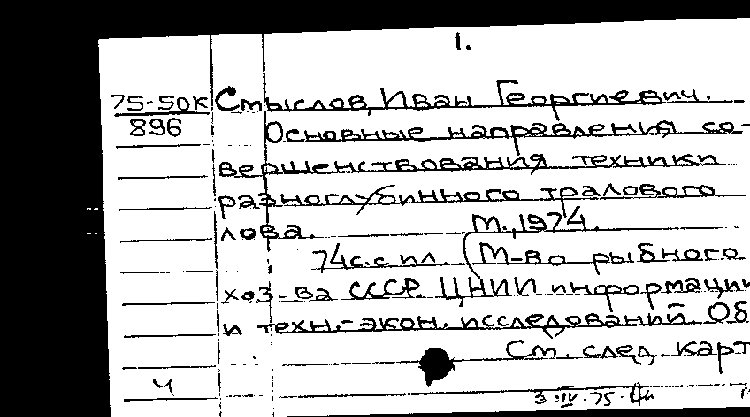 1.
75-50К Смыслов, Иван Георгиевич.
896 Основные направления со-
вершенствования техники
разноглубинного тралового
лова. М., 1974.
74с. с ил. (М-во рыбного
хоз-ва СССР. ЦНИИ информации
и техн.-экон. исследований. Об
См. след. карт
Ч
3.IV.75